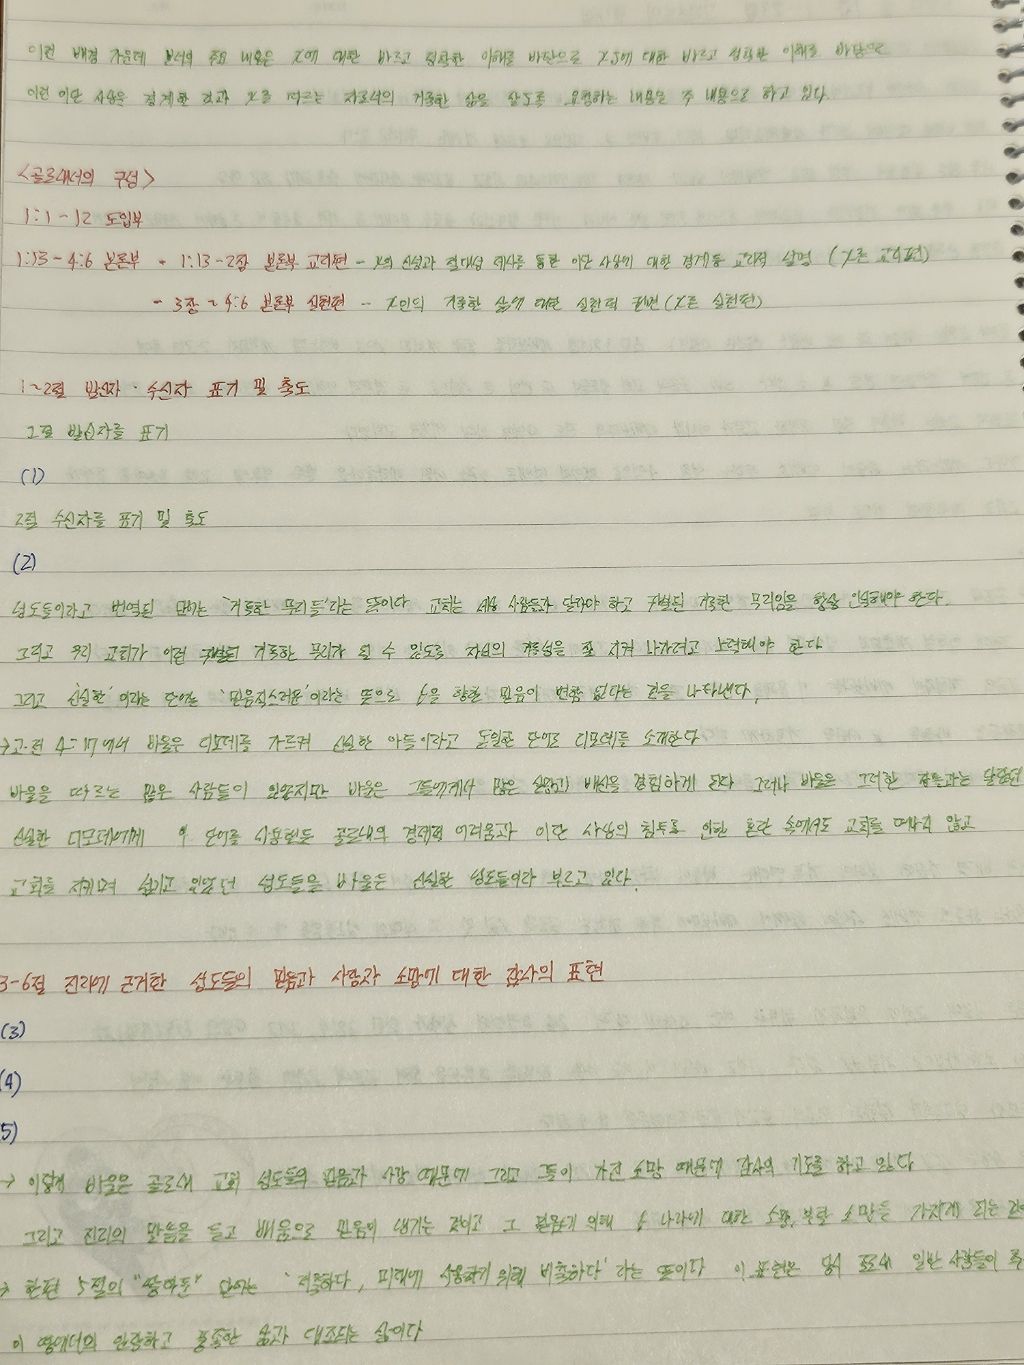 이런 배경 가운데 본서의 주요 내용은 X에 대한 바르고 정확한 이해를 바탕으로 X도에 대한 바르고 정확한 이해를 바탕으로
이런 이단 사상을 경계한 결과 X를 따르는 자로서의 거룩한 삶을 살도록 요청하는 내용을 주 내용으로 하고 있다.
<골로새서의 구성>
1:1-12 도입부
1:13-4:6 본론부 - 1:13-2장 본론부 교리편 - X의 신성과 절대성 제시를 통한 이단 사상에 대한 경계등 교리적 설명 (X론 교리편)
- 3장~4:6 본론부 실천편 - X인의 거룩한 삶에 대한 실천적 권면(X론 실천편)
1~2절 발신자·수신자 표기 및 축도
1절 발신자를 표기
(1)
2절 수신자를 표기 및 축도
(2)
성도들이라고 번역된 말는 '거룩한 무리들'라는 뜻이다 교회는 세상 사람들과 달라야 하고 구별된 거룩한 무리임을 항상 인식해야 한다.
그리고 우리 교회가 이런 구별된 거룩한 무리가 될 수 있도록 자신의 거룩성을 잘 지켜 나가려고 노력해야 한다
그리고 '신실한'이라는 단어는 '믿음직스러운'이라는 뜻으로 향한 믿음이 변함 없다는 것을 나타낸다.
→고.전 4:17에서 바울은 디모데를 가르켜 신실한 아들이라고 동일한 단어로 디모데를 소개한다
바울을 따르는 많은 사람들이 있었지만 바울은 그들에게서 많은 실망과 배신을 경험하게 된다 그러나 바울은 그러한 자들과는 달랐던
신실한 디모데에게 이 단어를 사용했듯 골로새의 경제적 어려움과 이단 사상의 침투로 인한 혼란 속에서도 교회를 떠나지 않고
교회를 지키며 섬기고 있었던 성도들을 바울은 신실한 성도들이라 부르고 있다.
3-6절 진리에 근거한 성도들의 믿음과 사랑과 소망에 대한 감사의 표현
(3)
(4)
(5)
→ 이렇게 바울은 골로새 교회 성도들의 믿음과 사랑 때문에 그리고 그들이 가진 소망 때문에 감사의 기도를 하고 있다
그리고 진리의 말씀을 듣고 배움으로 믿음이 생기는 것이고 그 믿음에 의해 나라에 대한 소망, 부활 소망을 가지게 되는
→ 한편 5절의 "쌓아둔" 단어는 '저축하다, 미래에 사용하기 위해 비축하다'라는 뜻이다 이 표현은 당시 일반 사람들이
이 땅에서의 안락하고 풍족한 삶과 대조되는 삶이다